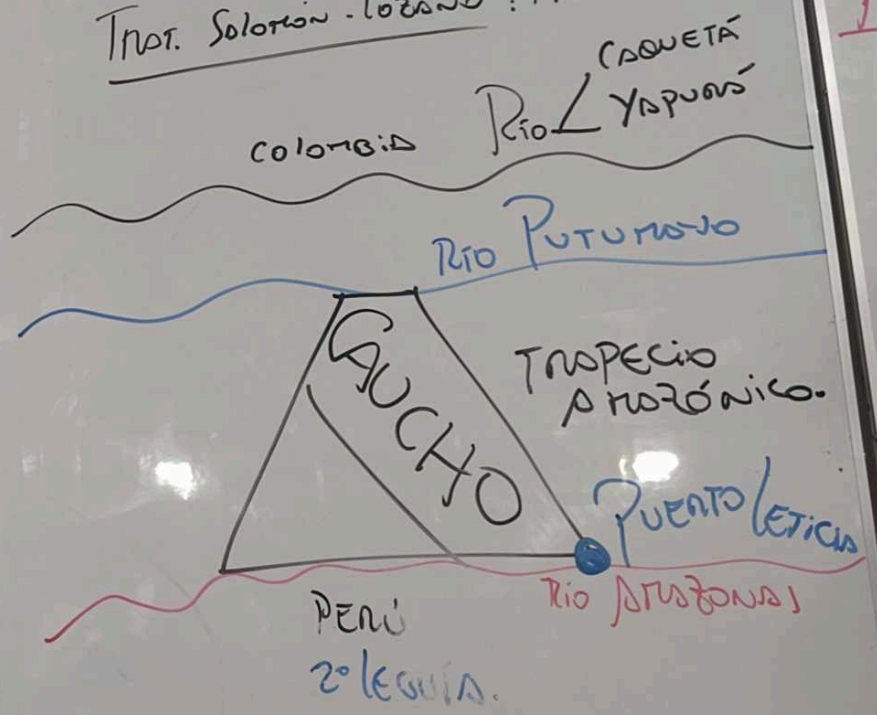 TRAT. SOLOMÓN - LOZANO
CAQUETÁ
RÍO YAPURÁ
COLOMBIA
RÍO PUTUMAYO
CAUCHO
TRAPECIO
AMAZÓNICO.
PUERTO LETICIA
RÍO AMAZONAS
PERÚ
2º LEGUÍA.